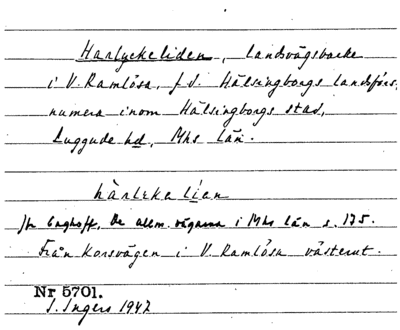 Harlyckeliden, landsvägsbacke
i V. Ramlösa, f.d. Hälsingborgs landsförs.
numera inom Hälsingborgs stad,
Luggude hd., Mhs län.
hàrlɛkəlíən
Jfr Enghoff, De allm. vägarna i Mhs län s. 175.
Från Korsvägen i V. Ramlösa västerut.
Nr 5701.
I. Ingers 1947